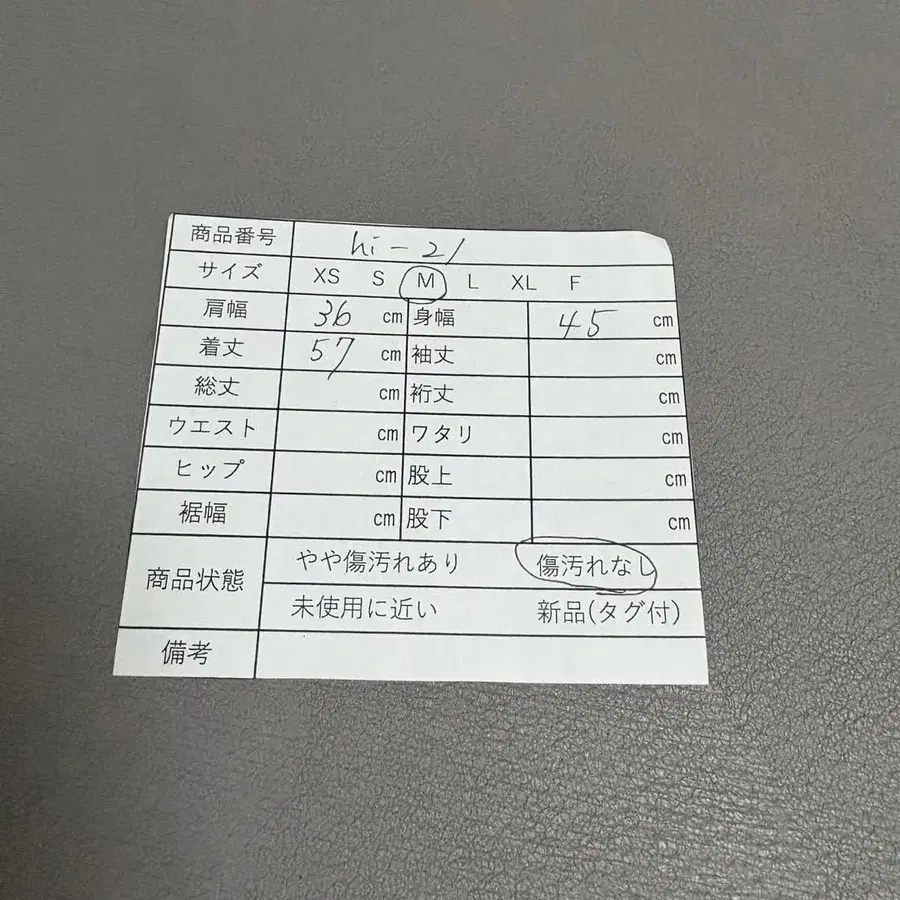 商品番号 hi-21
サイズ XS S M L XL F
肩幅 36 cm 身幅 45 cm
着丈 57 cm 袖丈 cm
総丈 cm 裄丈 cm
ウエスト cm ワタリ cm
ヒップ cm 股上 cm
裾幅 cm 股下 cm
商品状態 やや傷汚れあり 傷汚れなし
未使用に近い 新品(タグ付)
備考